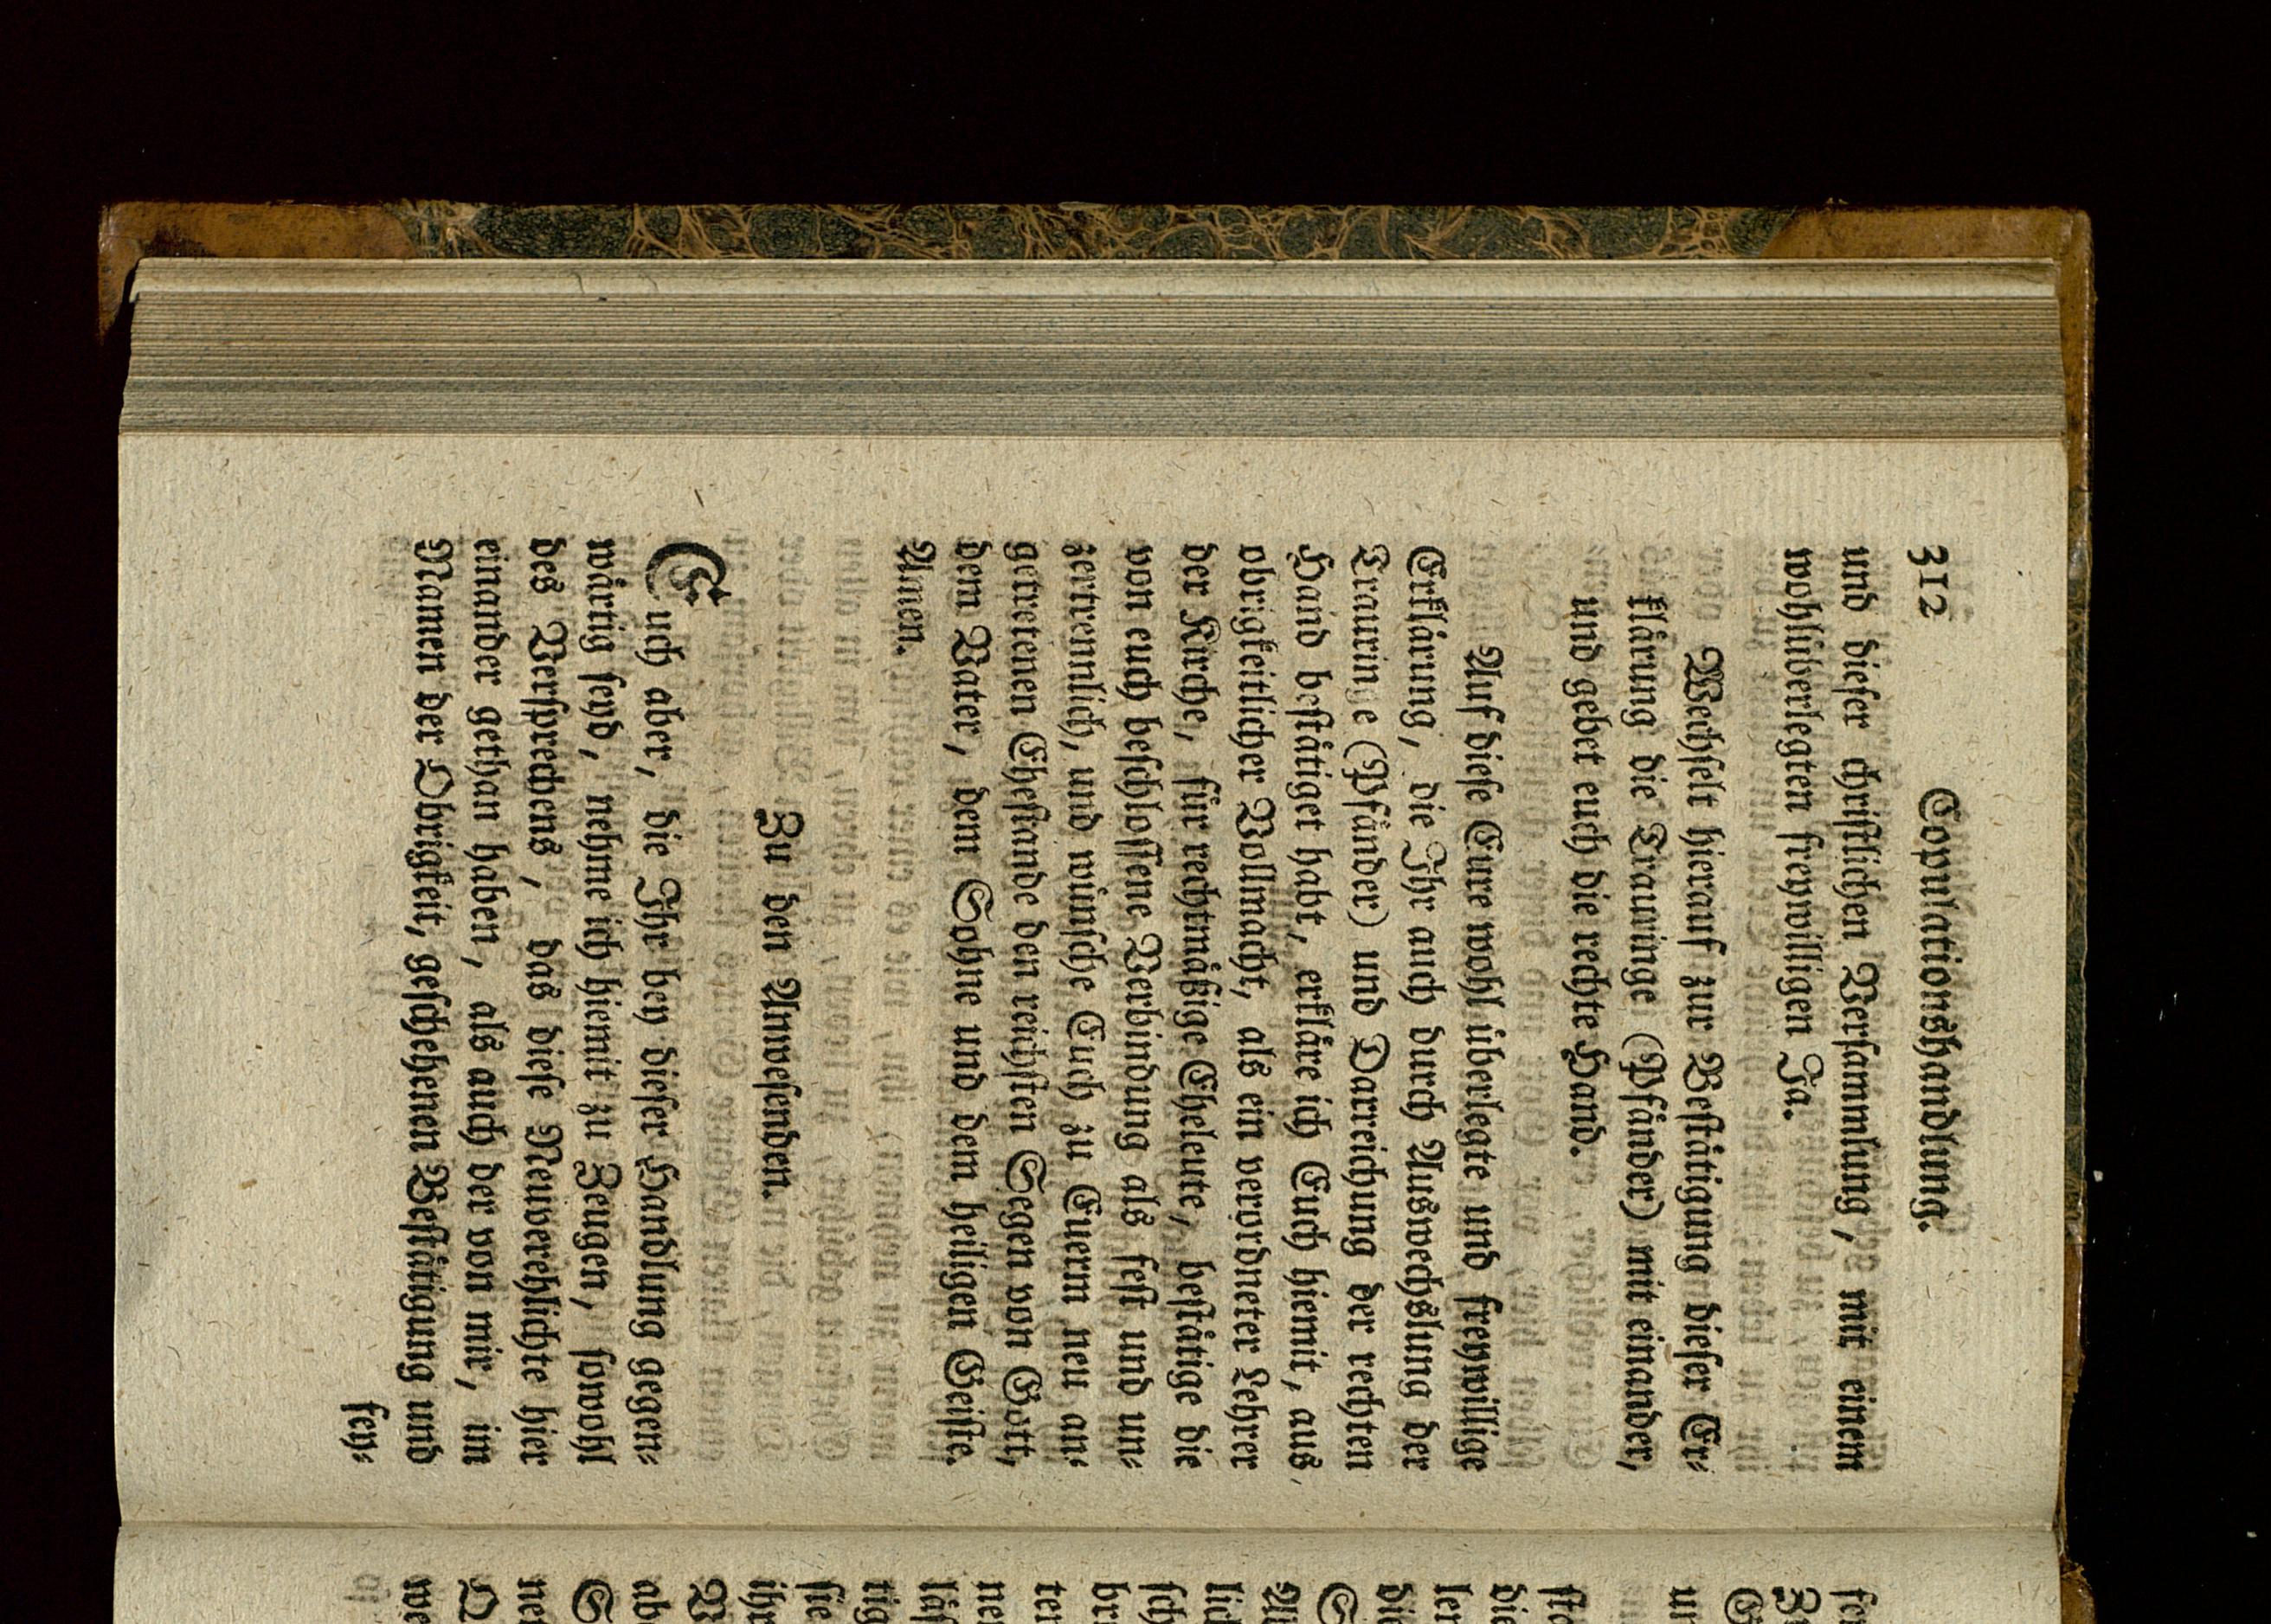 312 Copulationshandlung.
und dieser christlichen Versammlung, mit einem
wohlüberlegten freywilligen Ja.
Wechselt hierauf zur Bestätigung dieser Er-
klärung die Trauringe (Pfänder) mit einander,
und gebet euch die rechte Hand.
Auf diese Eure wohl überlegte und freywillige
Erklärung, die Ihr auch durch Auswechslung der
Trauringe (Pfänder) und Darreichung der rechten
Hand bestätiget habt, erkläre ich Euch hiemit, aus
obrigkeitlicher Vollmacht, als ein verordneter Lehrer
der Kirche, für rechtmäßige Eheleute, bestätige die
von euch beschlossene Verbindung als fest und un-
zertrennlich, und wünsche Euch zu Euerm neu an-
getretenen Ehestande den reichsten Segen von Gott,
dem Vater, dem Sohne und dem heiligen Geiste.
Amen.
Zu den Anwesenden.
Euch aber, die Ihr bey dieser Handlung gegen-
wärtig seyd, nehme ich hiemit zu Zeugen, sowohl
des Versprechens, das diese Neuverehlichte hier
einander gethan haben, als auch der von mir, im
Namen der Obrigkeit, geschehenen Bestätigung und
fey-